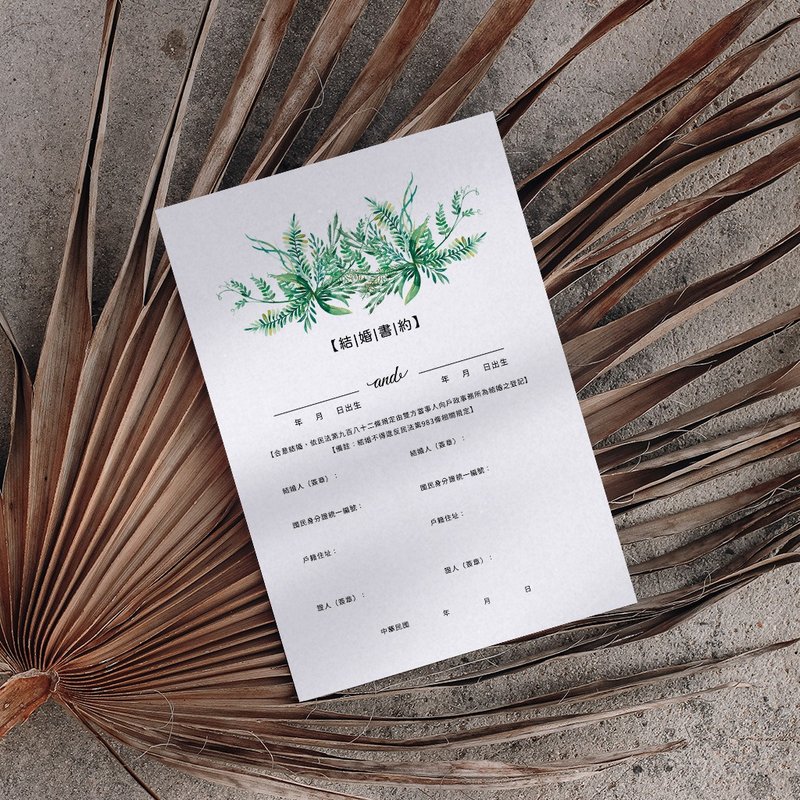 【結|婚|書|約】
and
年 月 日出生 年 月 日出生
【合意結婚,依民法第九百八十二條規定由雙方當事人向戶政事務所為結婚之登記】
【備註:結婚不得違反民法第983條相關規定】
結婚人(簽章): 結婚人(簽章):
國民身分證統一編號: 國民身分證統一編號:
戶籍住址: 戶籍住址:
證人(簽章): 證人(簽章):
中華民國 年 月 日